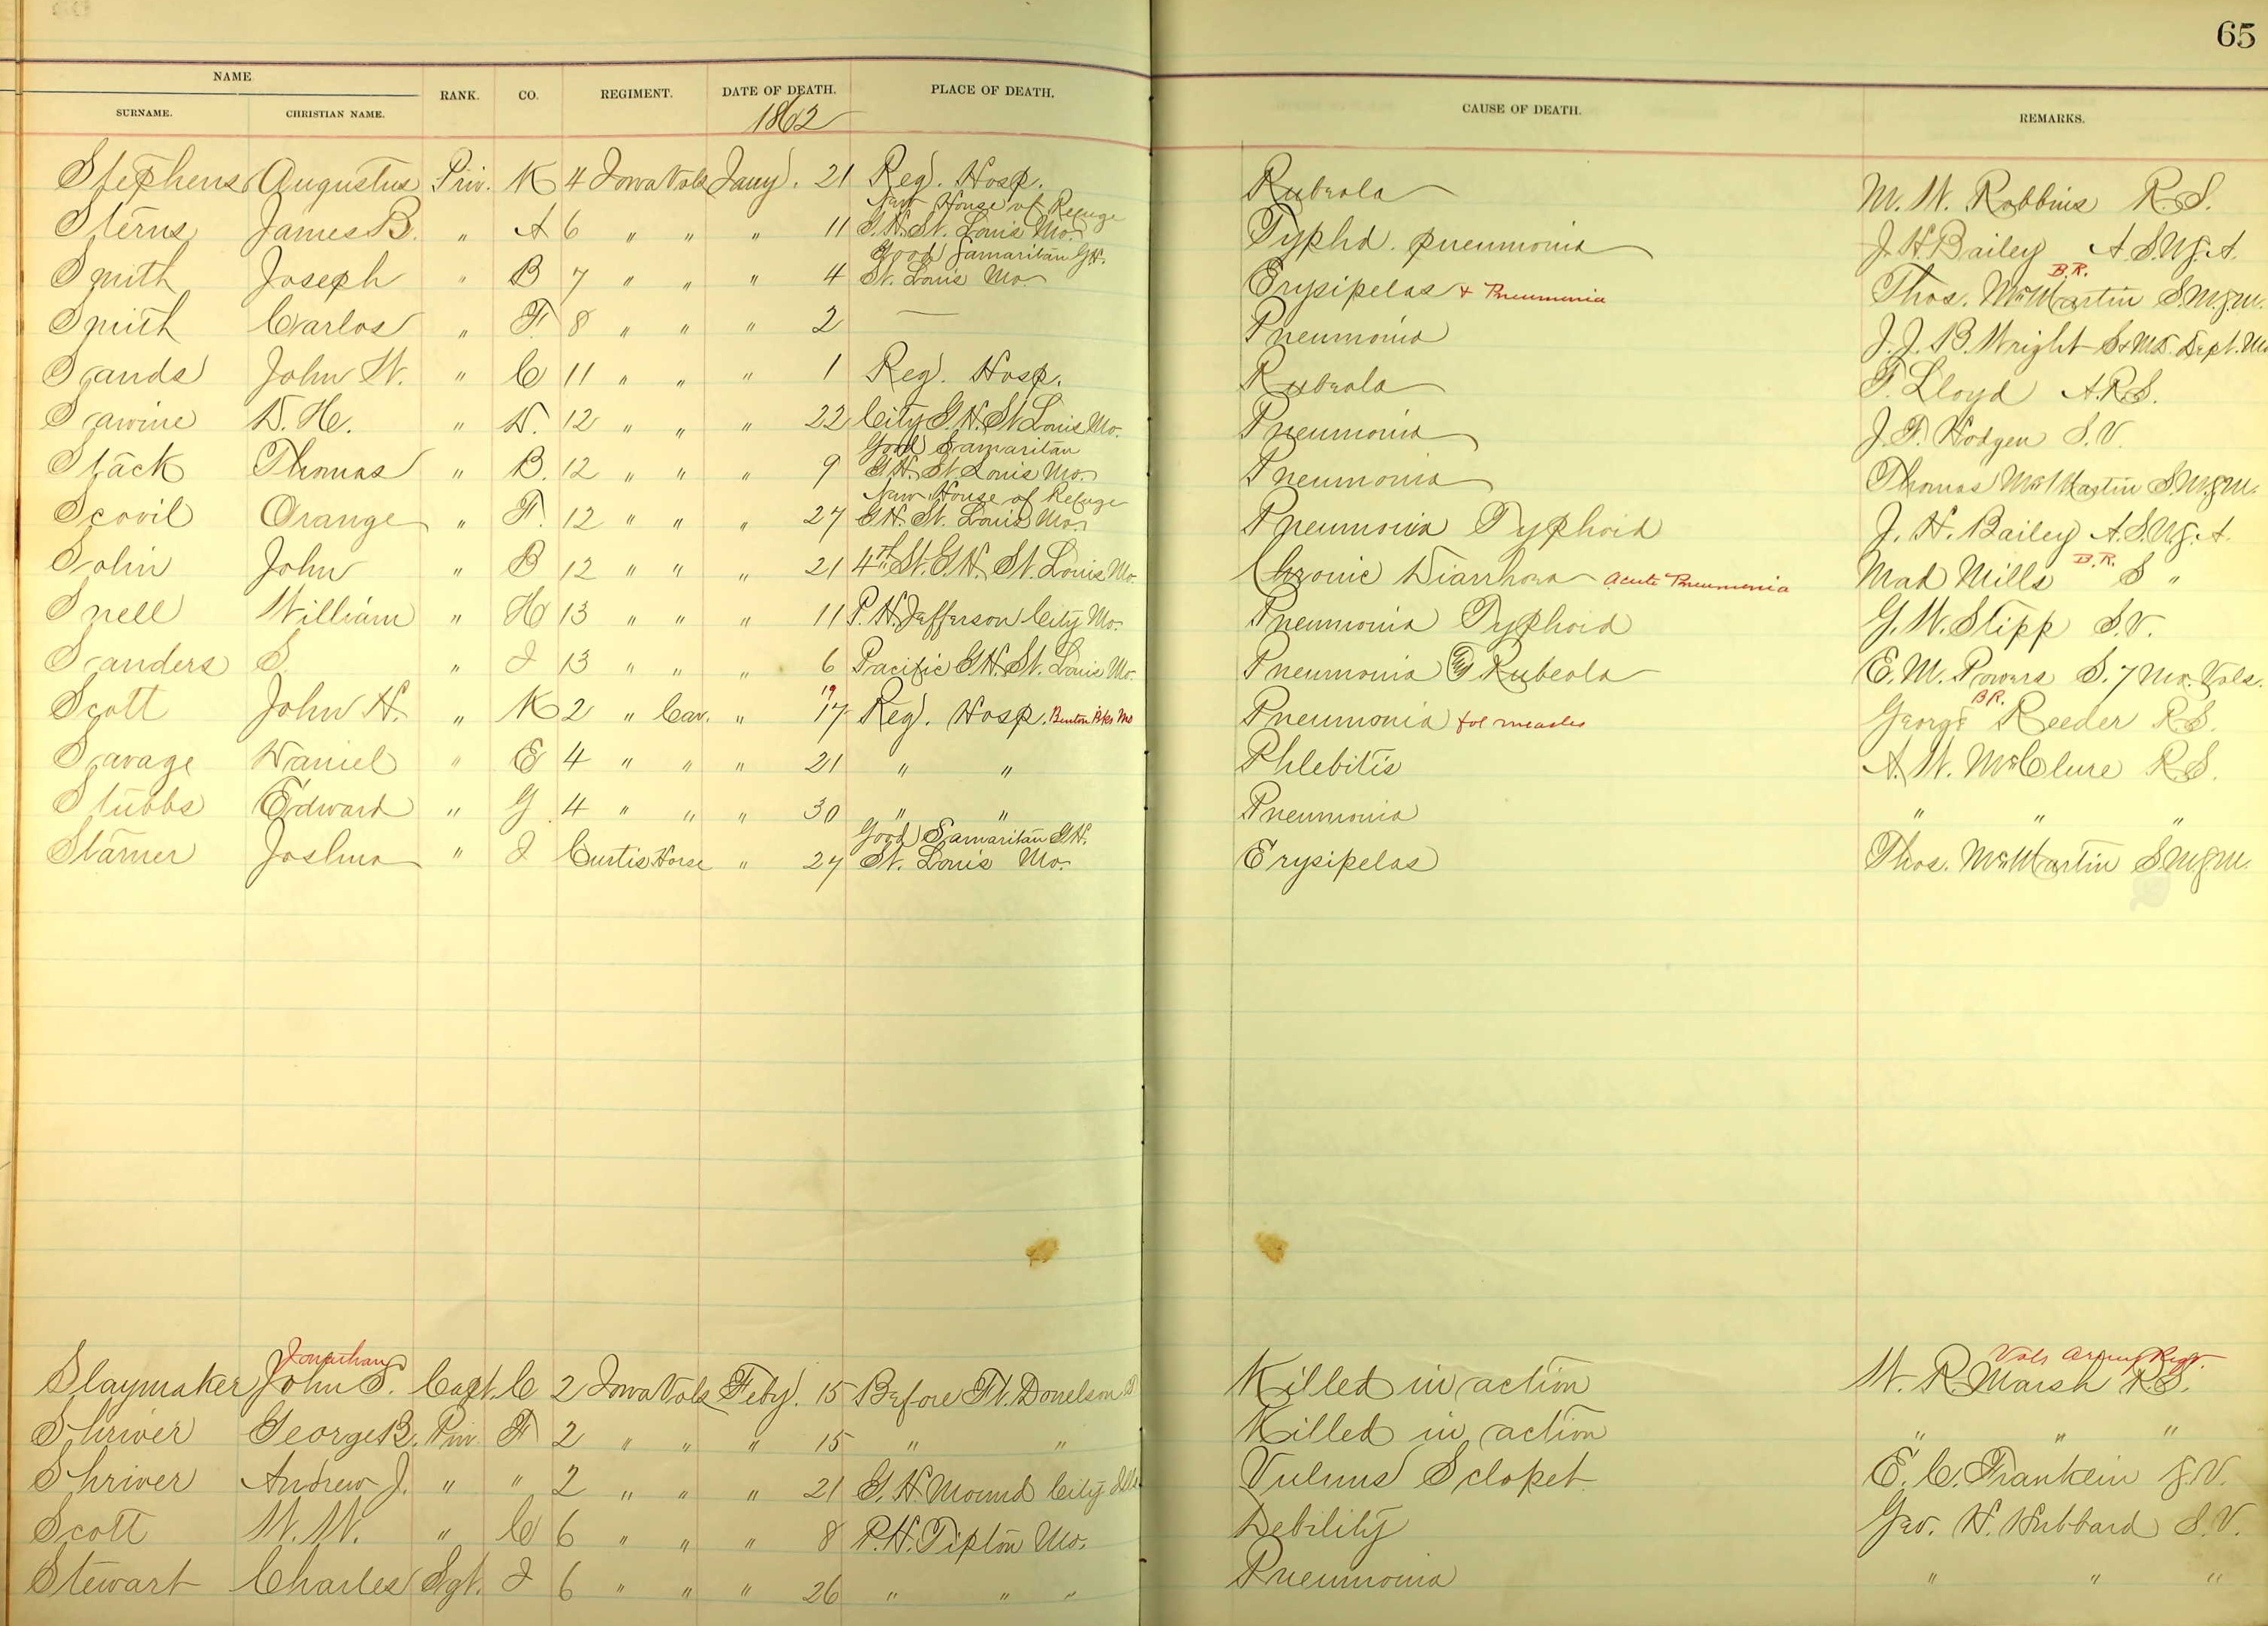 65
NAME.
SURNAME. CHRISTIAN NAME. RANK. CO. REGIMENT. DATE OF DEATH. PLACE OF DEATH. CAUSE OF DEATH. REMARKS.
1862
Stephens Augustus Priv. K 4 Iowa Vols Jany. 21 Reg. Hosp. Rubeola M. W. Robbins R.S.
New House of Refuge
Sterns James B. " A 6 " " " 11 G.H. St. Louis Mo. Typhd. pneumonia J. H. Bailey A.S.U.S.A.
Good Samaritan G.H. B.R.
Smith Joseph " B 7 " " " 4 St. Louis Mo. Erysipelas + Pneumonia Thos. McMartin S.M.S.M.
Smith Carlos " F. 8 " " " 2 — Pneumonia J. J. B. Wright S+M.D. Dept. Mo
Sands John W. " C 11 " " " 1 Reg. Hosp. Rubeola F. Lloyd A.R.S.
Sawine D. H. " D. 12 " " " 22 City G.H. St Louis Mo. Pneumonia J. T. Hodgen S.V.
Good Samaritan
Stack Thomas " B. 12 " " " 9 G.H. St Louis Mo. Pneumonia Thomas McMartin S.M.S.M.
New House of Refuge
Scovil Orange " F. 12 " " " 27 G.H. St. Louis Mo. Pneumonia Typhoid J. H. Bailey A.S.U.S.A.
B.R.
Solin John " B 12 " " " 21 4th St. G.H. St. Louis Mo. Chronic Diarrhoea acute Pneumonia Mad Mills S "
Snell William " H 13 " " " 11 P.H. Jefferson City Mo. Pneumonia Typhoid G. W. Stipp S.V.
Sanders S. " I 13 " " " 6 Pacific G.H. St. Louis Mo. Pneumonia & Rubeola E. M. Powers S. 7 Mo. Vols.
19 B.R.
Scott John H. " K 2 " Cav. " 17 Reg. Hosp. Benton Bks Mo Pneumonia fol measles George Reeder R.S.
Savage Daniel " E 4 " " " 21 " " Phlebitis A. W. McClure R.S.
Stubbs Edward " G 4 " " " 30 " " Pneumonia " " "
Good Samaritan G.H.
Starner Joshua " I Curtis Horse " 27 St. Louis Mo. Erysipelas Thos. McMartin S.M.S.M.
Jonathan Vols Army Regr.
Slaymaker John S. Capt. C 2 Iowa Vols Feby. 15 Before Ft. Donelson Killed in action W. R. Marsh R.S.
Shriver George B. Priv. F 2 " " " 15 " " Killed in action " " "
Shriver Andrew J. " " 2 " " " 21 G.H. Mound City Ills Vulnus Sclopet E. C. Franklin S.V.
Scott W. W. " C 6 " " " 8 P.H. Tipton Mo. Debility Geo. H. Hubbard S.V.
Stewart Charles Sgt. I 6 " " " 26 " " " Pneumonia " " "